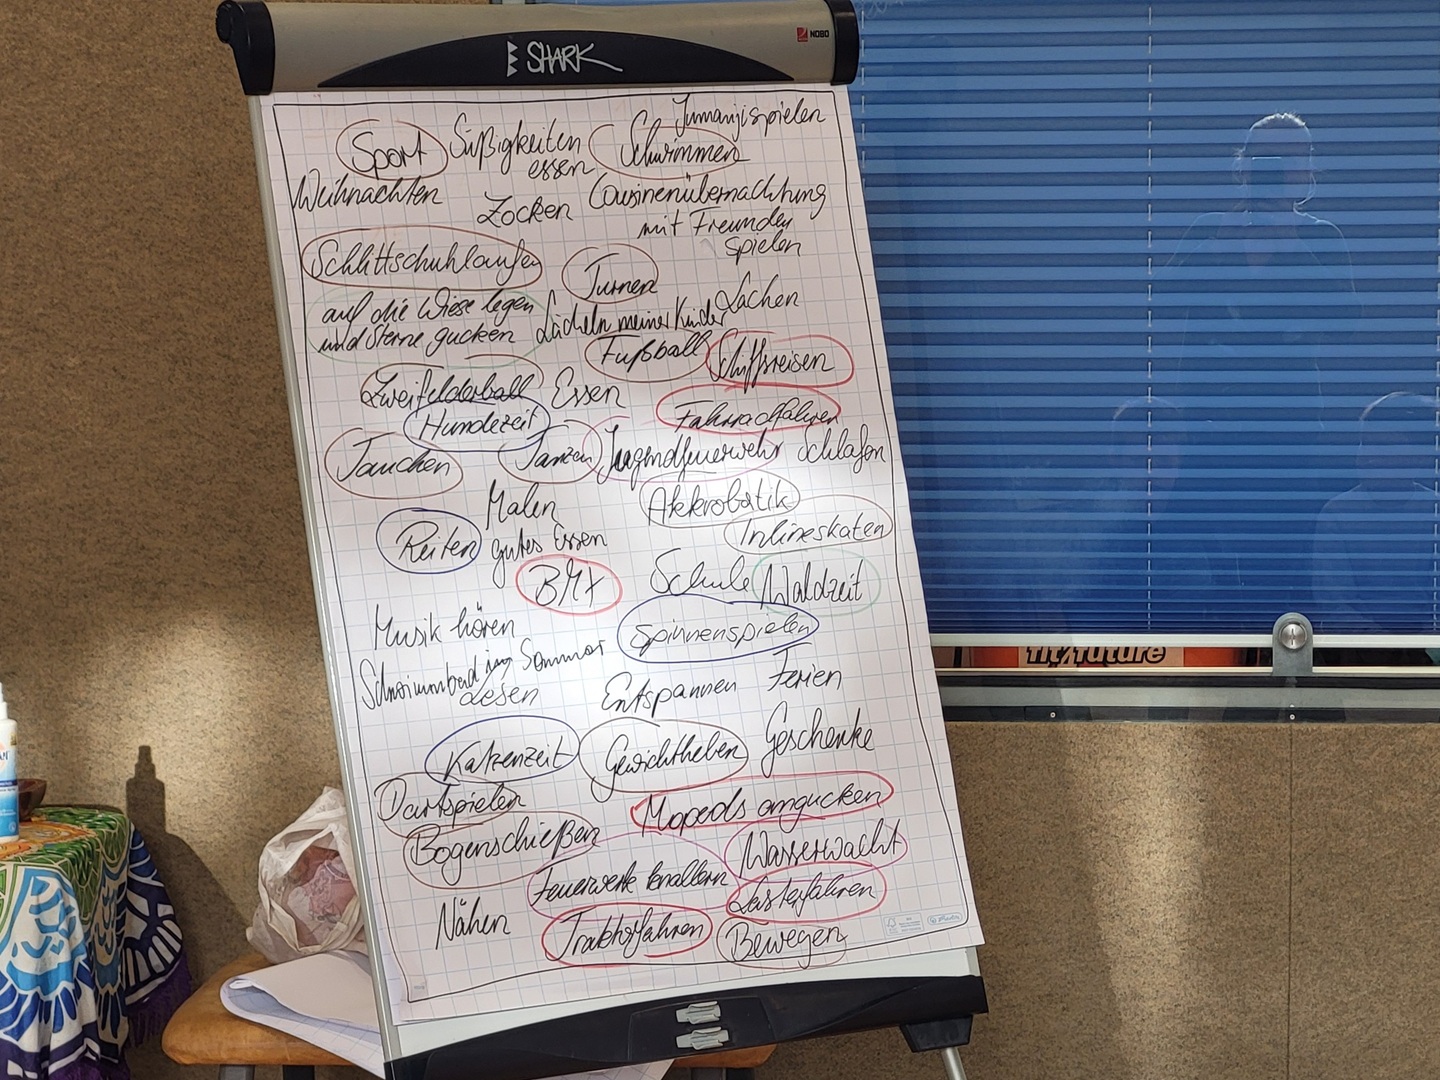 SHARK
NOBO
Jumanjispielen
Sport Süßigkeiten Schwimmen
essen
Weihnachten Zocken Cousinenübernachtung
mit Freunden
spielen
Schlittschuhlaufen Turnen
auf die Wiese legen Lachen
und Sterne gucken Lächeln meiner Kinder
Fußball Schiffsreisen
Zweifelderball Essen
Hundezeit Fahrradfahren
Tauchen Tanzen Jugendfeuerwehr Schlafen
Malen Akkrobatik
Reiten gutes Essen Inlineskaten
BMX Schule Waldzeit
Musik hören Spinnenspielen
Schwimmbad im Sommer
Lesen Entspannen Ferien
Katzenzeit Gewichtheben Geschenke
Dartspielen Mopeds angucken
Bogenschießen Wasserwacht
Feuerwerk knallern Lasterfahren
Nähen Traktorfahren Bewegen
fit4future